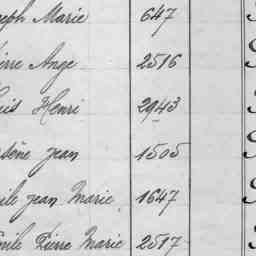 seph Marie 647
ierre Ange 2516
uis Henri 2943
sène Jean 1505
ile Jean Marie 1647
mile Pierre Marie 2517